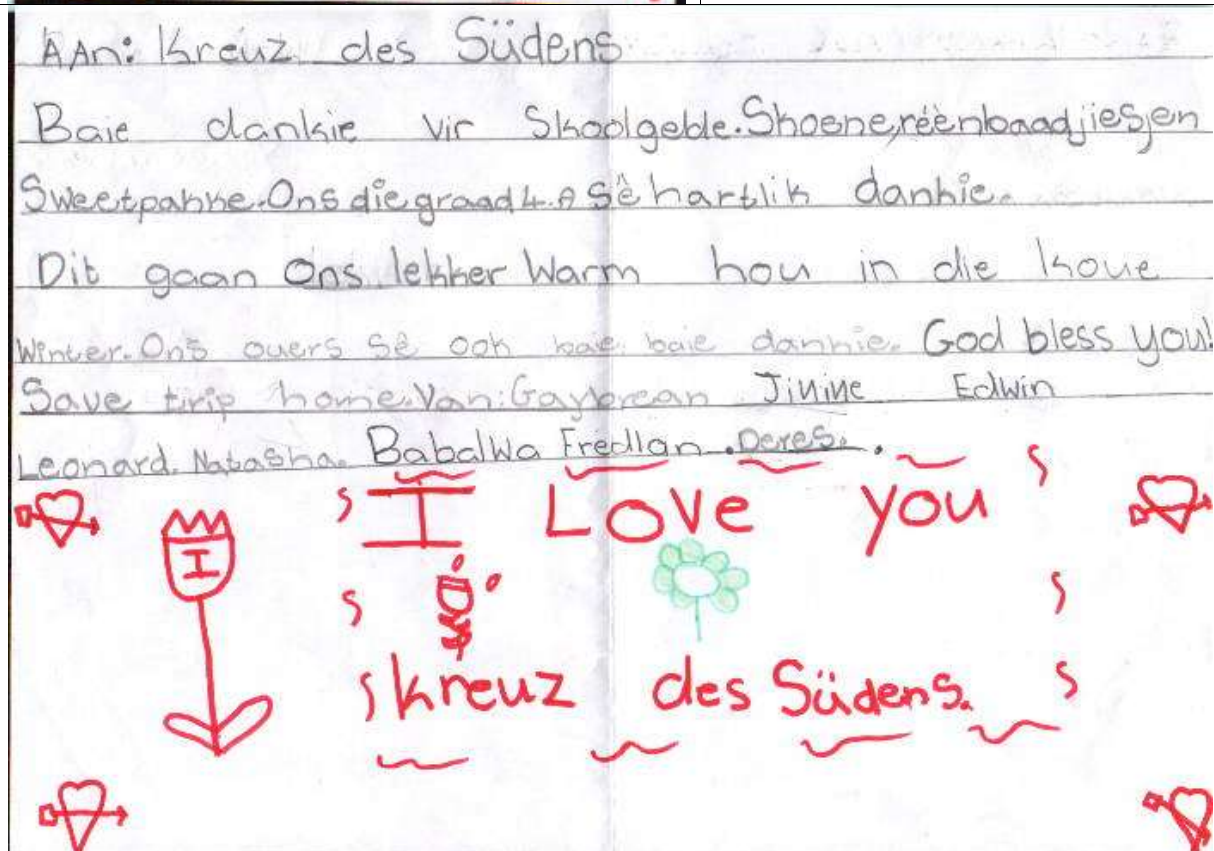 AAn: Kreuz des Südens
Baie dankie vir Skoolgelde.Skoene,réënbaadjies,en
Sweetpakke.Ons die graad 4.A Sê hartlik dankie.
Dit gaan Ons lekker Warm hou in die Koue
Winter.Ons ouers Sê ook baie baie dankie. God bless you!
Save trip home.Van: Jinine Edwin
Leonard. Natasha. Babalwa Fredlan .Deres. .
I Love you
I
kreuz des Südens.